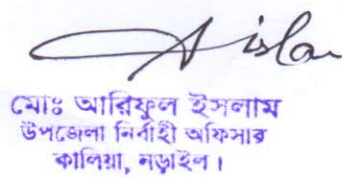 মোঃ আরিফুল ইসলাম
উপজেলা নির্বাহী অফিসার
কালিয়া, নড়াইল।